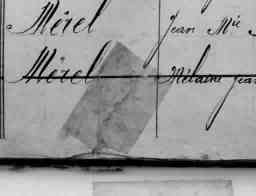 Mérel Jean Mie
Mérel Mélanie Jean